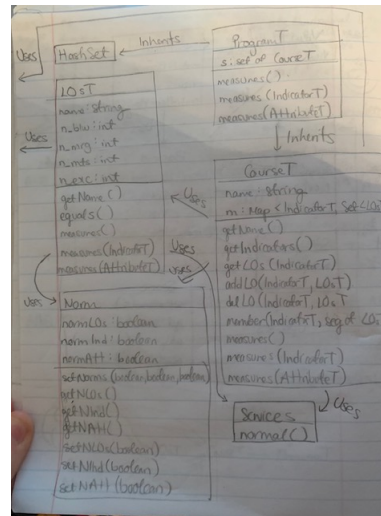 Uses
HashSet
Inherits
ProgramT
s: set of CourseT
measures()
measures(IndicatorT)
measures(AttributeT)
Inherits
LOsT
name: string
n_blw: int
n_mrg: int
n_mts: int
n_exc: int
getName()
equals()
measures()
measures(IndicatorT)
measures(AttributeT)
Uses
Uses
Uses
Uses
CourseT
name: string
m: Map <IndicatorT, Set<LOs
getName()
getIndicators()
getLOs(IndicatorT)
addLO(IndicatorT, LOsT
delLO(IndicatorT, LOsT
member(IndicatorT, seq of LOs
measures()
measures(IndicatorT)
measures(AttributeT)
Uses
Uses
Norm
normLOs: boolean
normInd: boolean
normAtt: boolean
setNorms(boolean, boolean, boolean)
getNLOs()
getNInd()
getNAtt()
setNLOs(boolean)
setNInd(boolean)
setNAtt(boolean)
Services
normal()